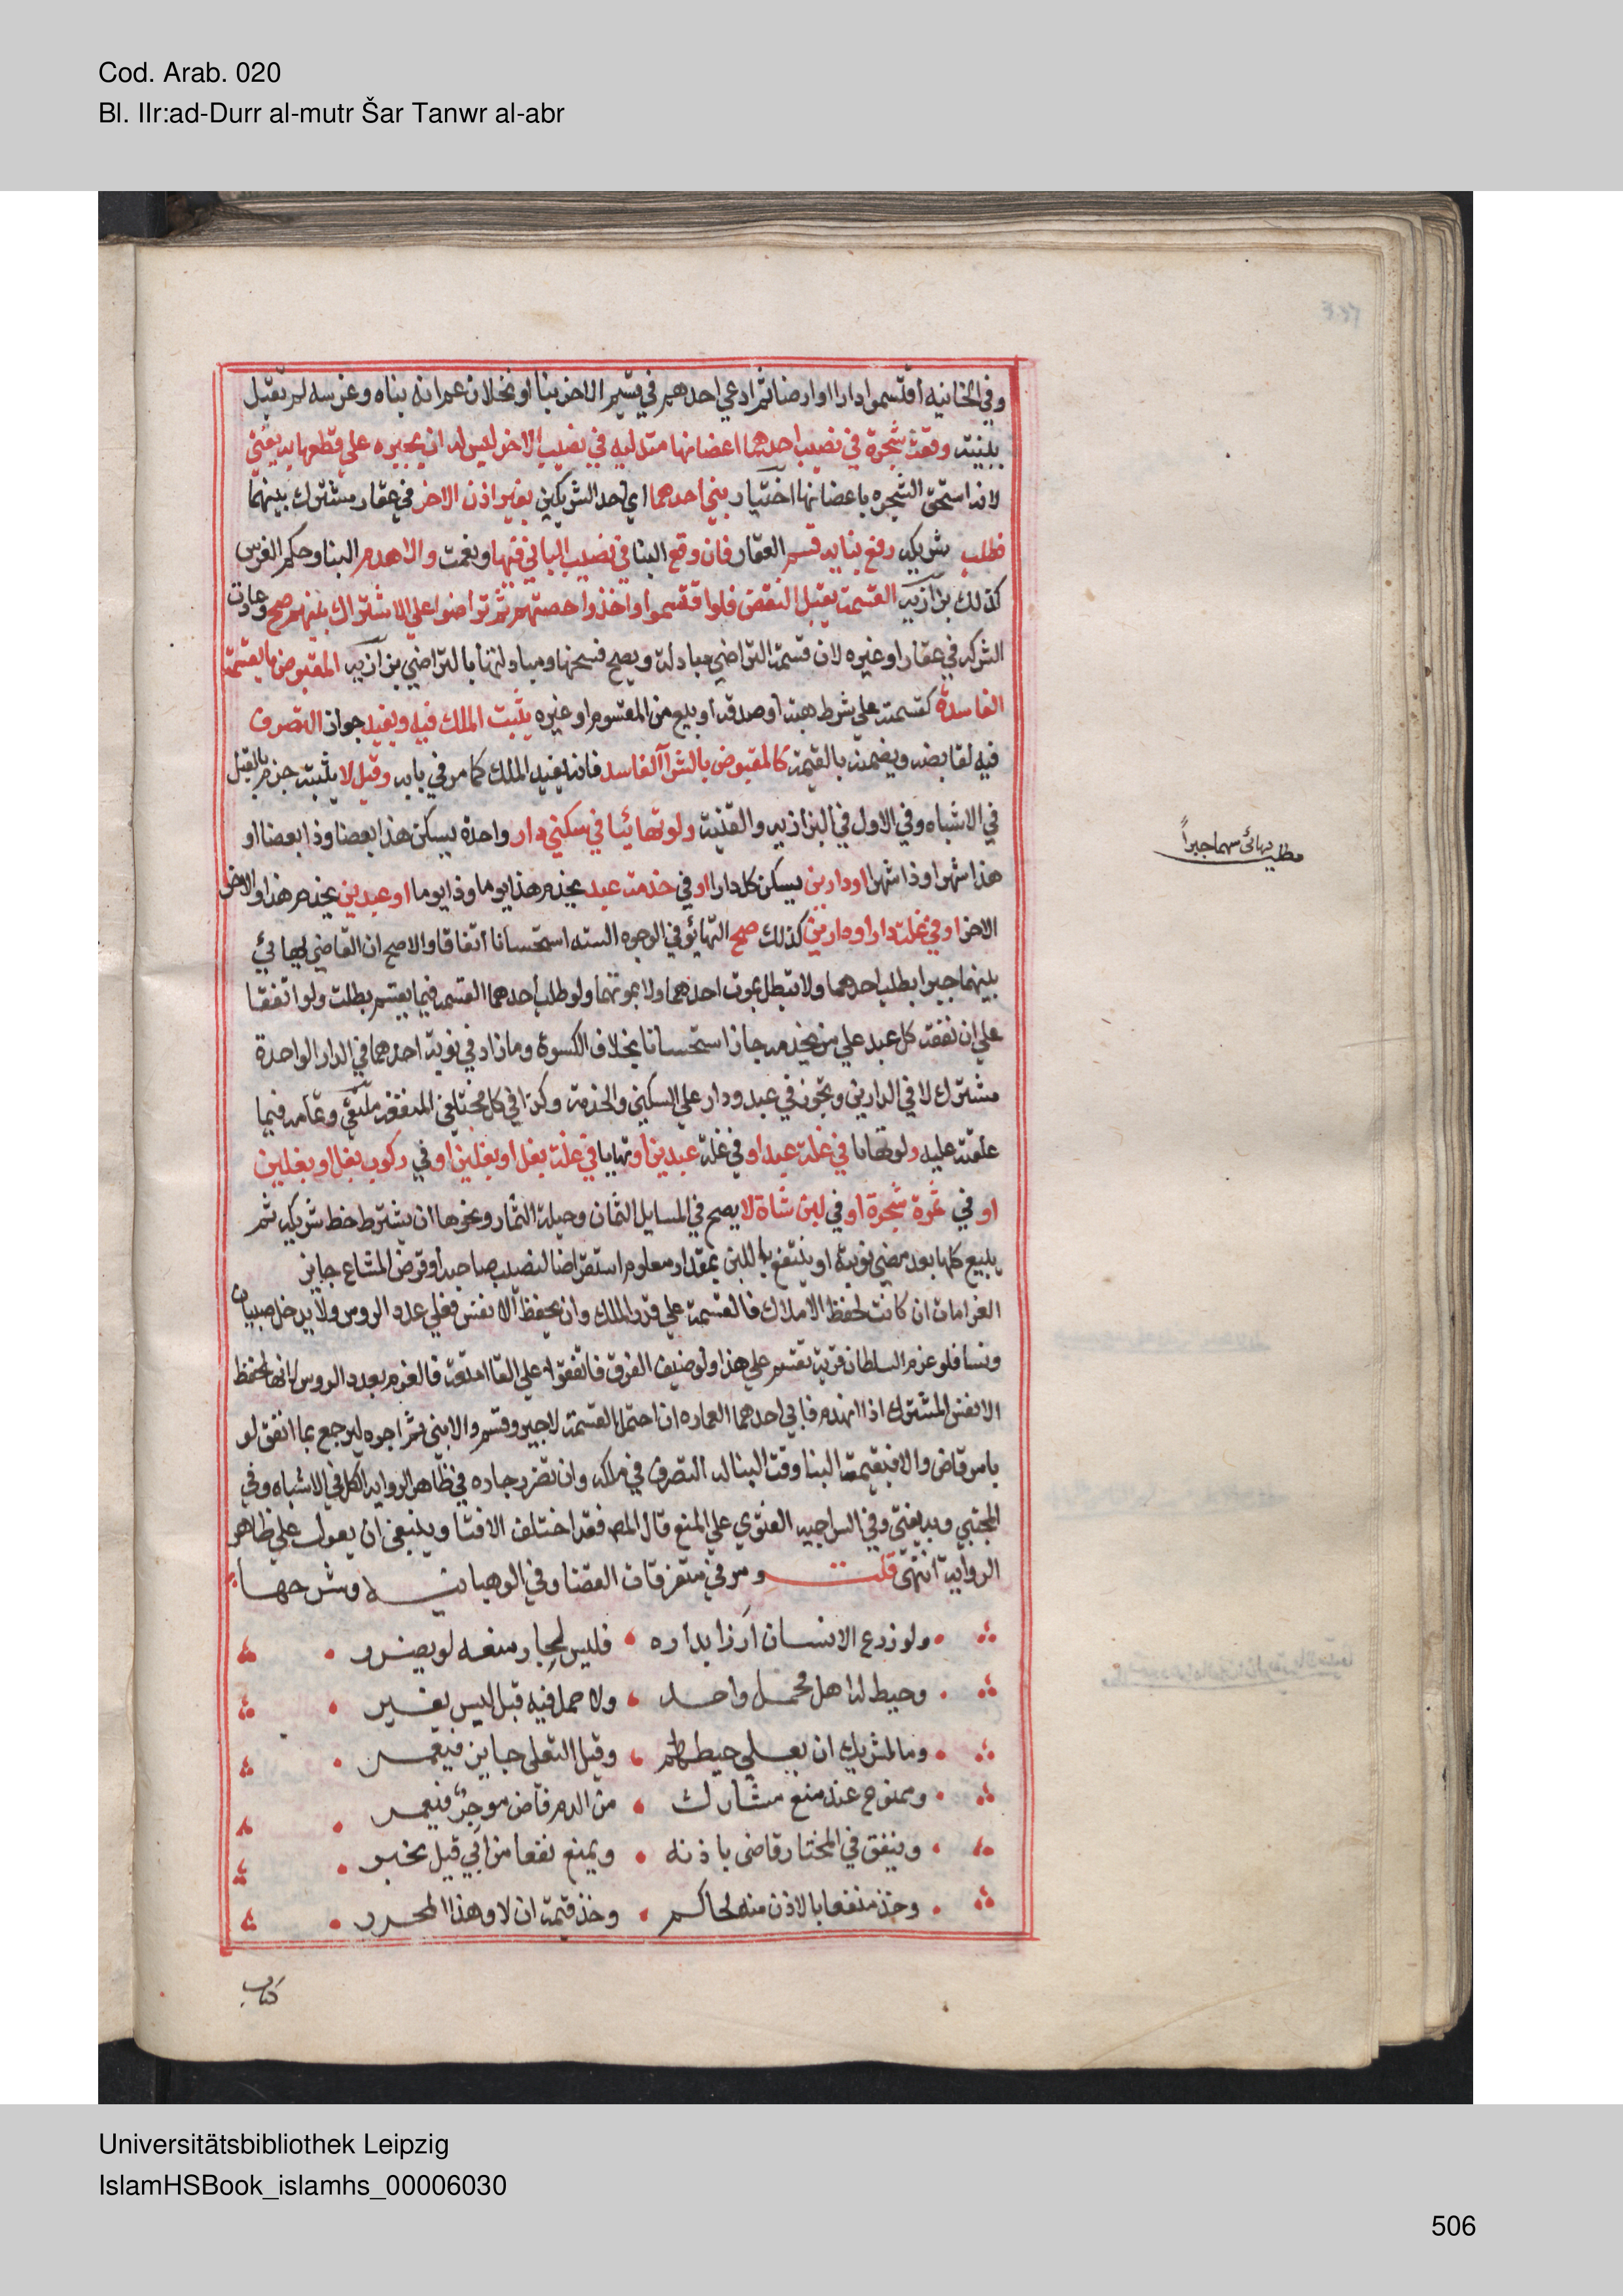 Cod. Arab. 020
Bl. IIr:ad-Durr al-mutr Šar Tanwr al-abr
وفي الخانيه اقتسموا دارا او ارضا ثم ادعي احدهم في قسم الاخر بنا او نخلا زعم انه بناه وغرسه لم تقبل
بينته وقعت شجرة في نصيب احدهما اغصانها متدليه في نصيب الاخر ليس له ان يجبره علي قطعها به يفتي
لانه استحق الشجره باغصانها اختيار بني احدهما اي احد الشريكين بغير اذن الاخر في عقار مشترك بينهما
فطلب شريكه رفع بنايه قسم العقار فان وقع البنا في نصيب الباني فبها ونعمت والا هدم البنا وحكم الغرس
كذلك بزازيه القسمة تقبل النقض فلو اقتسموا واخذوا حصتهم ثم تراضوا علي الاشتراك بينهم صح وعادت
الشركه في عقار او غيره لان قسمة التراضي مبادلة ويصح فسخها ومبادلتها بالتراضي بزازيه المقبوض بالقسمة
الفاسدة كقسمة علي شرط هبة او صدقة او بيع من المقسوم او غيره يثبت الملك فيه ويفيد جواز التصرف
فيه لقابضه ويضمنه بالقيمة كالمقبوض بالشرآ الفاسد فانه يفيد الملك كما مر في بابه وقيل لا يثبته جزم بالقيل
في الاشباه وفي الاول في البزازيه والقنيه ولو تهائيا في سكني دار واحدة يسكن هذا بعضا وذا بعضا او
هذا شهرا وذا شهرا او دارين يسكن كل دارا او في خدمت عبد يخدم هذا يوما وذا يوما او عبدين يخدم هذا والاخر
الاخر او في غلة دار او دارين كذلك صح التهايؤ في الوجوه السته استحسانا اتفاقا والاصح ان القاضي يهايئ
بينهما جبرا بطلب احدهما ولا تبطل بموت احدهما ولا بموتهما ولو طلب احدهما القسمه فيما يقسم بطلت ولو اتفقا
علي ان نفقة كل عبد علي من يخدمه جاز استحسانا بخلاف الكسوة وما زاد في نوبة احدهما في الدار الواحدة
مشترك لا في الدارين وتجوز في عبد ودار علي السكني والخدمة وكذا في كل مختلفي المنفعة ملتقي وتمامه فيما
علقته عليه ولو تهايا في غلة عبد او في غلة عبدين او تهايا في غلة بغل او بغلين او في ركوب بغل او بغلين
او في ثمرة شجرة او في لبن شاة لا يصح في المسايل الثمان وحيلة الثمار ونحوها ان يشترط حظ شريكه ثم
يبيع كلها بعد مضي نوبته او ينتفع باللبن بمقدار معلوم استقراضا لنصيب صاحبه او قرض المشاع جايز
الغرامات ان كانت لحفظ الاملاك فالقسمة علي قدر الملك وان لحفظ الانفس فعلي عدد الروس ولا يدخل صبيان
ونسا فلو غرم السلطان قرية تقسم علي هذا ولو خيف الغرق فاتفقوا علي القا امتعة فالغرم بعدد الروس لانها لحفظ
الانفس المشترك اذا انهدم فابي احدهما العماره ان احتمل القسمة لاجبر وقسم والا بني ثم اجره ليرجع بما انفق لو
بامر قاض والا فبقيمة البنا وقت البنا له التصرف في ملكه وان تضرر جاره في ظاهر الرواية الكل في الاشباه وفي
المجتبي وبه يفتي وفي السراجيه الفتوي علي المنع قال المص فقد اختلف الافتا وينبغي ان يعول علي ظاهر
الرواية انتهي قلت ومر في متفرقات القضا وفي الوهبانيه وشرحها
ولو زرع الانسان ارزا بداره فليس لجار منعه لو يضرر
وحيط له اهل فحمل واحد ولا حمل فيه قبل ليس يغير
وما لشريك ان يعلي حيطهم وقيل التعلي جايز فيعمر
وممنوع عند منع مشارك من الرم قاض موجر فيعمر
وينفق في المختار قاض باذنه ويمنع نفعا من ابي قبل يخبر
وخذ منفقا بالاذن منه لحاكم وخذ قيمة ان لا وهذا المحرر
كتاب
مطلب يهائي بينهما جبراً
Universitätsbibliothek Leipzig
IslamHSBook_islamhs_00006030
506